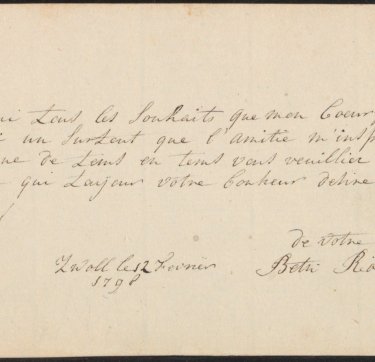 tous les Souhaits que mon Coeur
un Surtout que l'amitie m'insp
que de tems en tems vous veuillier
qui toujour votre bonheur desire
de votre
Zwoll le 12 Fevrier
1798
Betsi